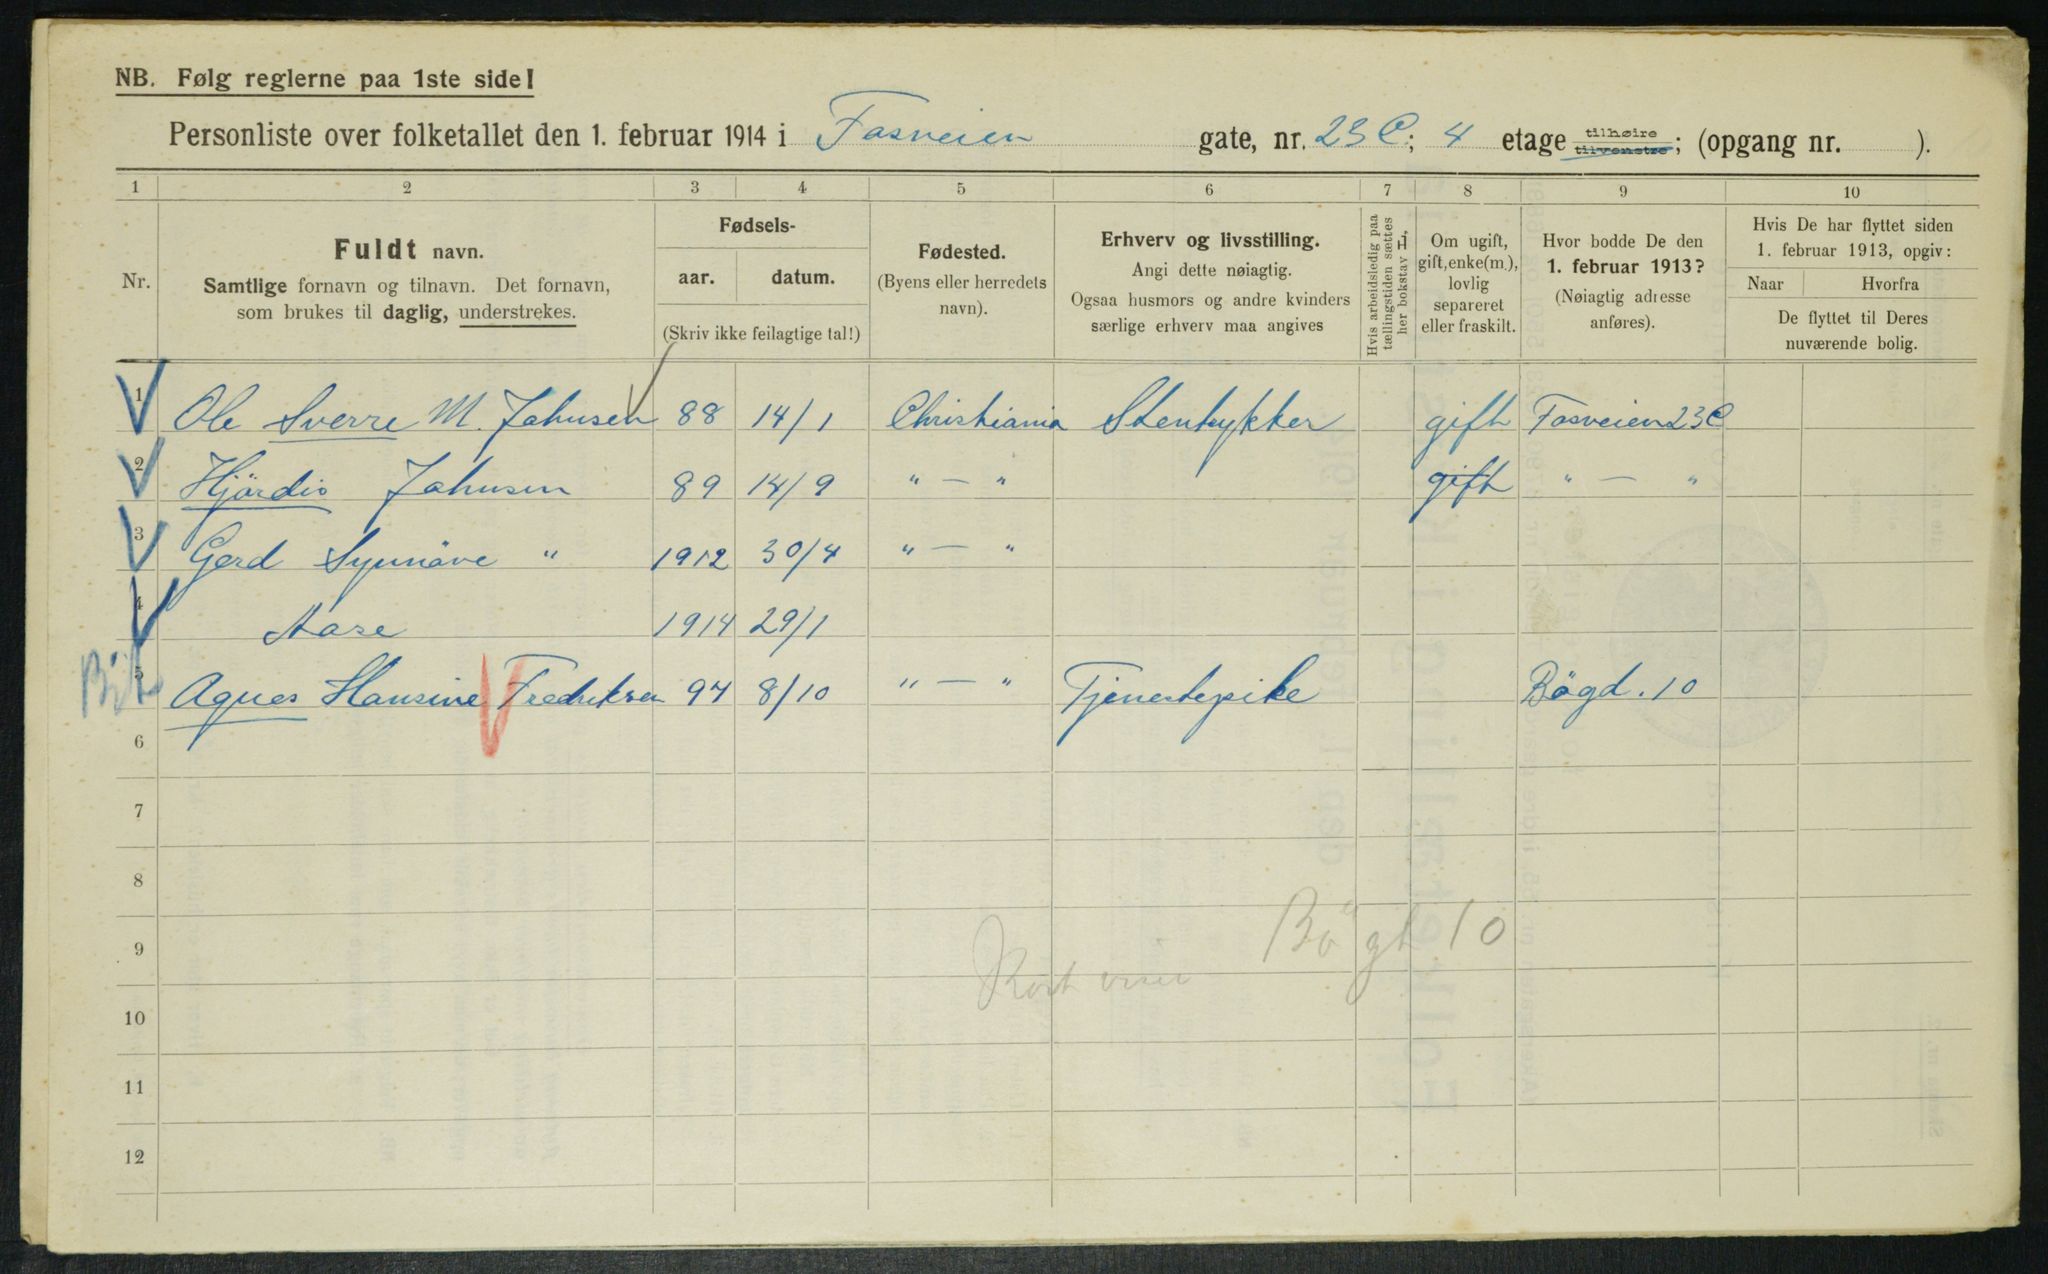 NB. Følg reglerne paa 1ste side!
Personliste over folketallet den 1. februar 1914 i Fasveien gate, nr. 23 C; 4 etage tilhøire tilvenstre; (opgang nr. ).
1 2 3 4 5 6 7 8 9 10
Nr.
Fuldt navn.
Samtlige fornavn og tilnavn. Det fornavn,
som brukes til daglig, understrekes.
Fødsels-
aar. datum.
(Skriv ikke feilagtige tal!)
Fødested.
(Byens eller herredets
navn).
Erhverv og livsstilling.
Angi dette nøiagtig.
Ogsaa husmors og andre kvinders
særlige erhverv maa angives
Hvis arbeidsledig paa
tællingstiden sættes
her bokstav L,
Om ugift,
gift, enke(m.),
lovlig
separeret
eller fraskilt.
Hvor bodde De den
1. februar 1913?
(Nøiagtig adresse
anføres).
Hvis De har flyttet siden
1. februar 1913, opgiv:
Naar Hvorfra
De flyttet til Deres
nuværende bolig.
1 Ole Sverre M. Johnsen 88 14/1 Christiania Stentrykker gift Fasveien 23 C
2 Hjördis Johnsen 89 14/9 " — " gift " — "
3 Gerd Synnöve " 1912 30/4 " — "
4 Aase 1914 29/1
5 Agnes Hansine Fredriksen 97 8/10 " — " Tjenestepike Bögd. 10
6
7
8
9 Bögt 10
10
11
12